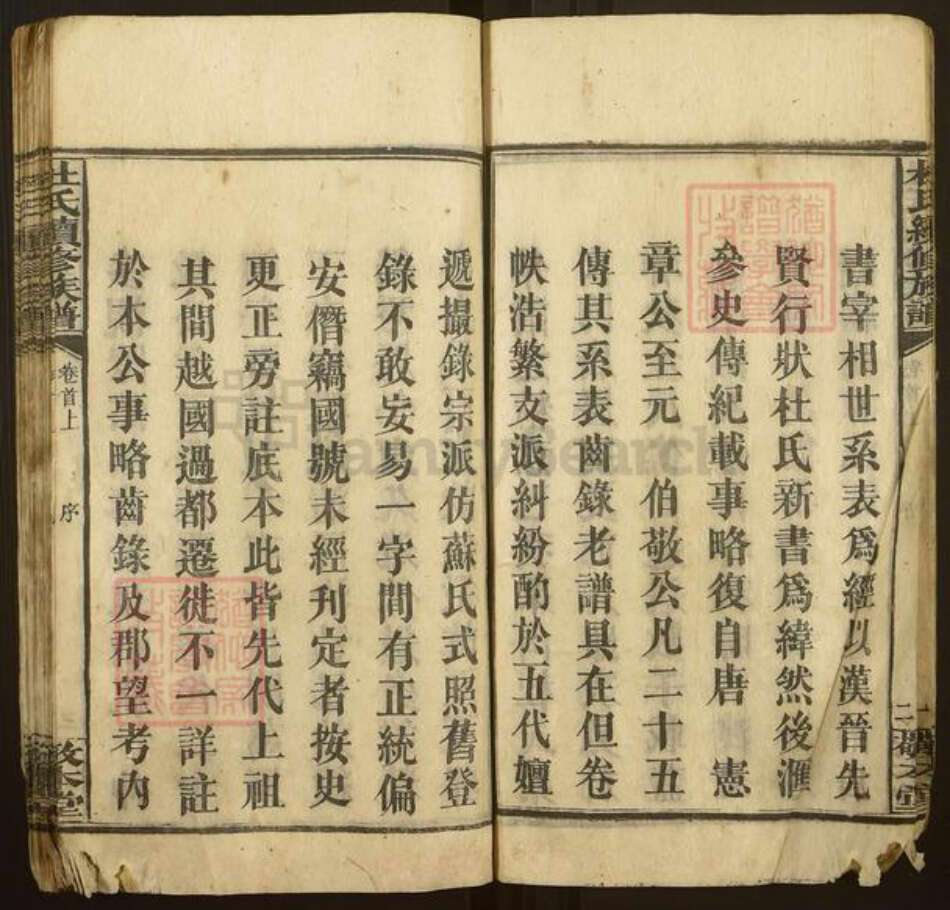 杜氏續修族譜
書宰相世系表爲經以漢晉先
賢行狀杜氏新書爲緯然後滙
參史傳紀載事略復自唐 憲
章公至元 伯敬公凡二十五
傳其系表齒錄老譜具在但卷
帙浩繁支派糾紛酌於五代嬗
遞撮錄宗派仿蘇氏式照舊登
錄不敢妄易一字間有正統偏
安僭竊國號未經刋定者按史
更正旁註底本此皆先代上祖
其間越國過都遷徙不一詳註
於本公事略齒錄及郡望考內
杜氏續修族譜 卷首上 序 敦本堂